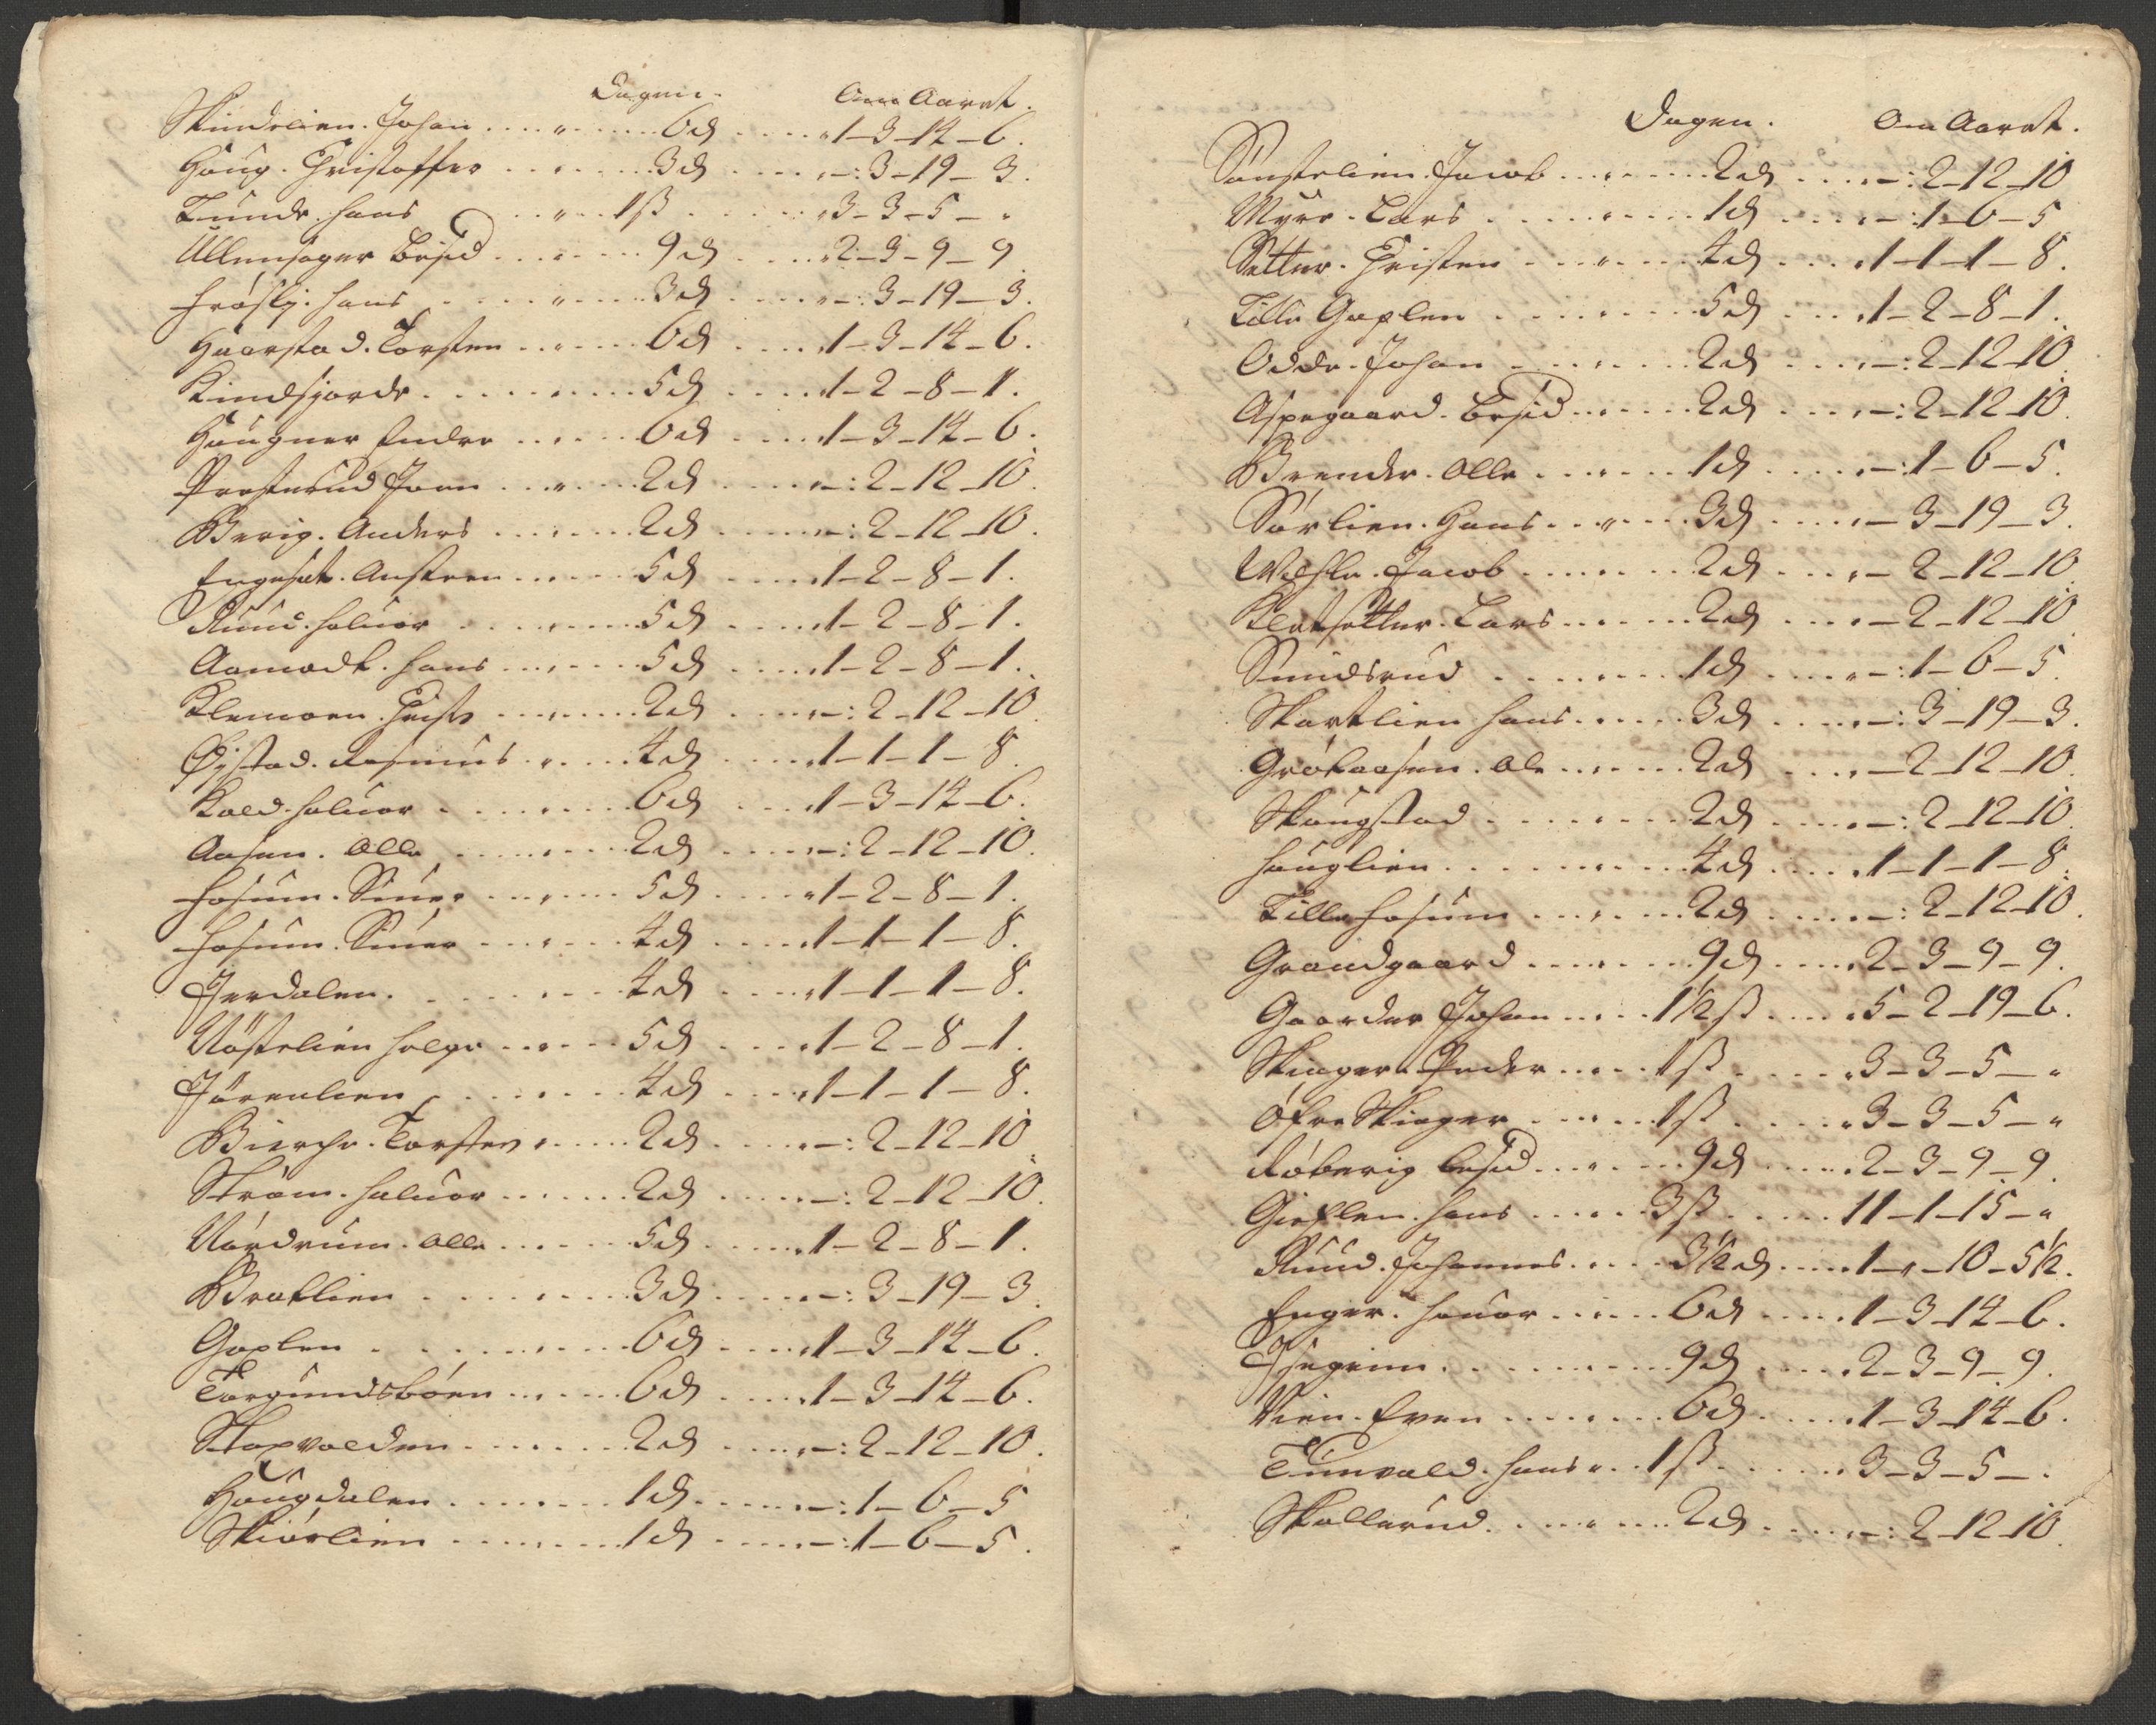 Dagen. Om Aaret.
Skindelien. Johan . . . . 6 d . . . 1-3-14-6.
Houg. Christoffer . . . . 3 d . . . -:3-19-3.
Lunde. Hans . . . . 1 ß . . . 3-3-5-"
Ullensager Besid . . . . 9 d . . . 2-3-9-9
Frøslj. Hans . . . . 3 d . . . -:3-19-3.
Haarstad. Torsten . . . . 6 d . . . 1-3-14-6.
Kindsjorde . . . . 5 d . . . 1-2-8-1.
Hougner Endre . . . . 6 d . . . 1-3-14-6.
Presterud Joen . . . . 2 d . . . -:2-12-10.
Berig. Anders . . . . 2 d . . . -:2-12-10.
Engeset. Austeen . . . . 5 d . . . 1-2-8-1.
Ruud. Haluor . . . . 5 d . . . 1-2-8-1.
Aamodt. Hans . . . . 5 d . . . 1-2-8-1.
Klemoen. Christ . . . . 2 d . . . -:2-12-10
Øistad. Rasmus . . . . 4 d . . . 1-1-1-8.
Kold. Haluor . . . . 6 d . . . 1-3-14-6.
Aasen. Olle . . . . 2 d . . . -:2-12-10.
Fosum. Siuer . . . . 5 d . . . 1-2-8-1.
Fosum. Siuer . . . . 4 d . . . 1-1-1-8.
Jerdalen. . . . . 4 d . . . 1-1-1-8.
Nøstelien Helge . . . . 5 d . . . 1-2-8-1.
Jørenlien . . . . 4 d . . . 1-1-1-8.
Bierche. Torsten . . . . 2 d . . . -:2-12-10
Strøm. Haluor . . . . 2 d . . . -:2-12-10.
Nordrum. Olle . . . . 5 d . . . 1-2-8-1.
Bratlien . . . . 3 d . . . -:3-19-3.
Goplen . . . . 6 d . . . 1-3-14-6.
Torgundsbøen . . . . 6 d . . . 1-3-14-6.
Stapvolden . . . . 2 d . . . -:2-12-10.
Hougdalen . . . . 1 d . . . -:1-6-5
Skiørlien . . . . 1 d . . . -:1-6-5.
Dagen. Om Aaret.
Sønstelien. Jacob . . . . 2 d . . . -:2-12-10
Myre. Lars . . . . 1 d . . . -:1-6-5
Setter. Christen . . . . 4 d . . . 1-1-1-8.
Lille Goplen . . . . 5 d . . . 1-2-8-1.
Odde. Johan . . . . 2 d . . . -:2-12-10
Aspegaard. Besid . . . . 2 d . . . -:2-12-10.
Brende. Olle . . . . 1 d . . . -:1-6-5.
Sørlien. Hans . . . . 3 d . . . -3-19-3.
Wæhle. Jacob . . . . 2 d . . . -2-12-10
Kletsetter. Lars . . . . 2 d . . . -2-12-10
Smidsrud . . . . 1 d . . . -:1-6-5.
Skartlien Hans . . . . 3 d . . . -:3-19-3.
Grøtaasen. Ole . . . . 2 d . . . -2-12-10.
Skougstad . . . . 2 d . . . -:2-12-10.
Houglien . . . . 4 d . . . 1-1-1-8.
Lille Fosum . . . . 2 d . . . -:2-12-10.
Grandgaard . . . . 9 d . . . 2-3-9-9.
Gaarder Johan . . . . 1½ ß . . . 5-2-19-6.
Skinger. Peder . . . . 1 ß . . . 3-3-5-"
Øfre Skinger . . . . 1 ß . . . 3-3-5-"
Røberig besid . . . . 9 d . . . 2-3-9-9.
Gieflen. Hans . . . . 3 ß . . . 11-1-15-"
Ruud. Johannes . . . . 3½ d . . . 1-"-10-5½.
Enger. Hauor . . . . 6 d . . . 1-3-14-6.
Isegrim . . . . 9 d . . . 2-3-9-9.
Vien. Even . . . . 6 d . . . 1-3-14-6.
Tunvold. Hans . . . . 1 ß . . . 3-3-5-.
Skollerud. . . . . 2 d . . . -:2-12-10.